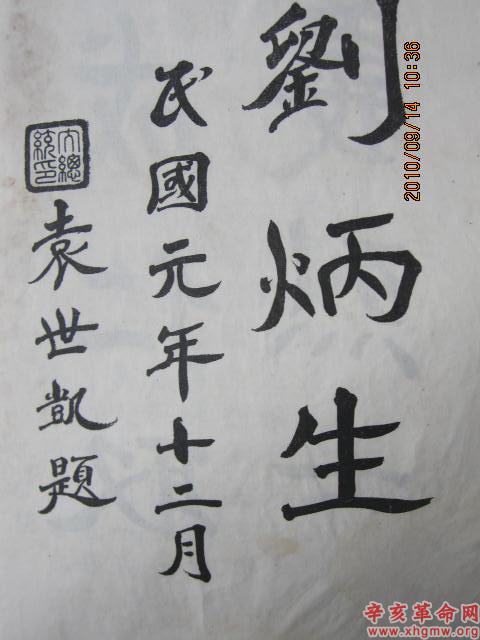 劉炳生
民國元年十二月
大總統印
袁世凱題
2010/09/14 10:36
辛亥革命网
www.xhgmw.org